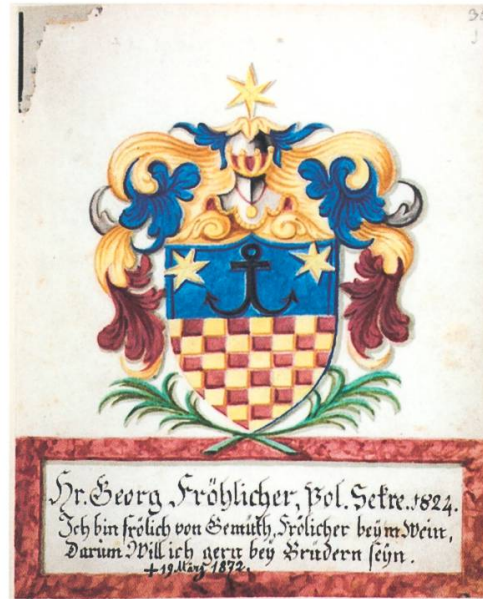 Hr. Georg Fröhlicher, Pol. Sekre. 1824.
Ich bin frölich von Gemüth, Frölicher beym Wein,
Darum Will ich gern bey Brüdern seÿn.
+ 19 März 1872.